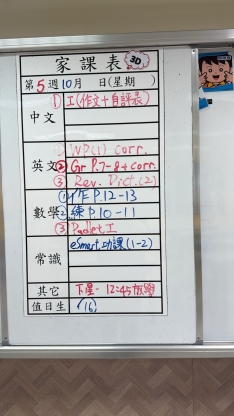 家課表 3D
第5週10月 日(星期 )
中文 ① 工(作文+自評表)
① WP(1) corr.
英文 ② Gr P.7-8+corr.
③ Rev. Dict.(2)
① 作 P.12-13
數學 ② 練 P.10-11
③ Padlet 工
常識 eSmart 功課(1-2)
其它 下星一 12:45放學
值日生 (16)